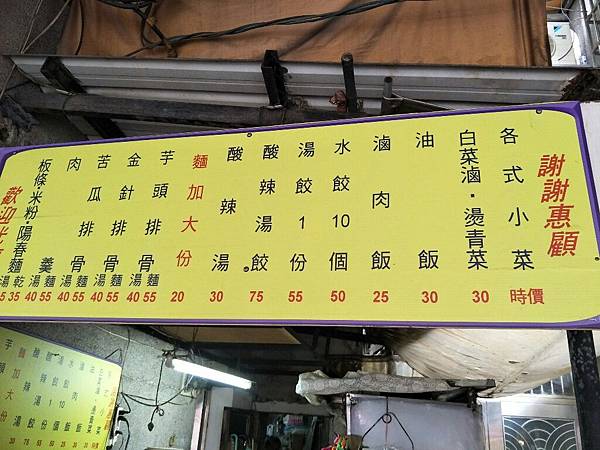 謝謝惠顧
各式小菜 時價
白菜滷·燙青菜 30
油飯 30
滷肉飯 25
水餃10個 50
湯餃1份 55
酸辣湯餃 75
酸辣湯 30
麵加大份 20
芋頭排骨湯麵 40 55
金針排骨湯麵 40 55
苦瓜排骨湯麵 40 55
肉羹湯麵 40 55
板條米粉·陽春麵湯乾 5 35
歡迎